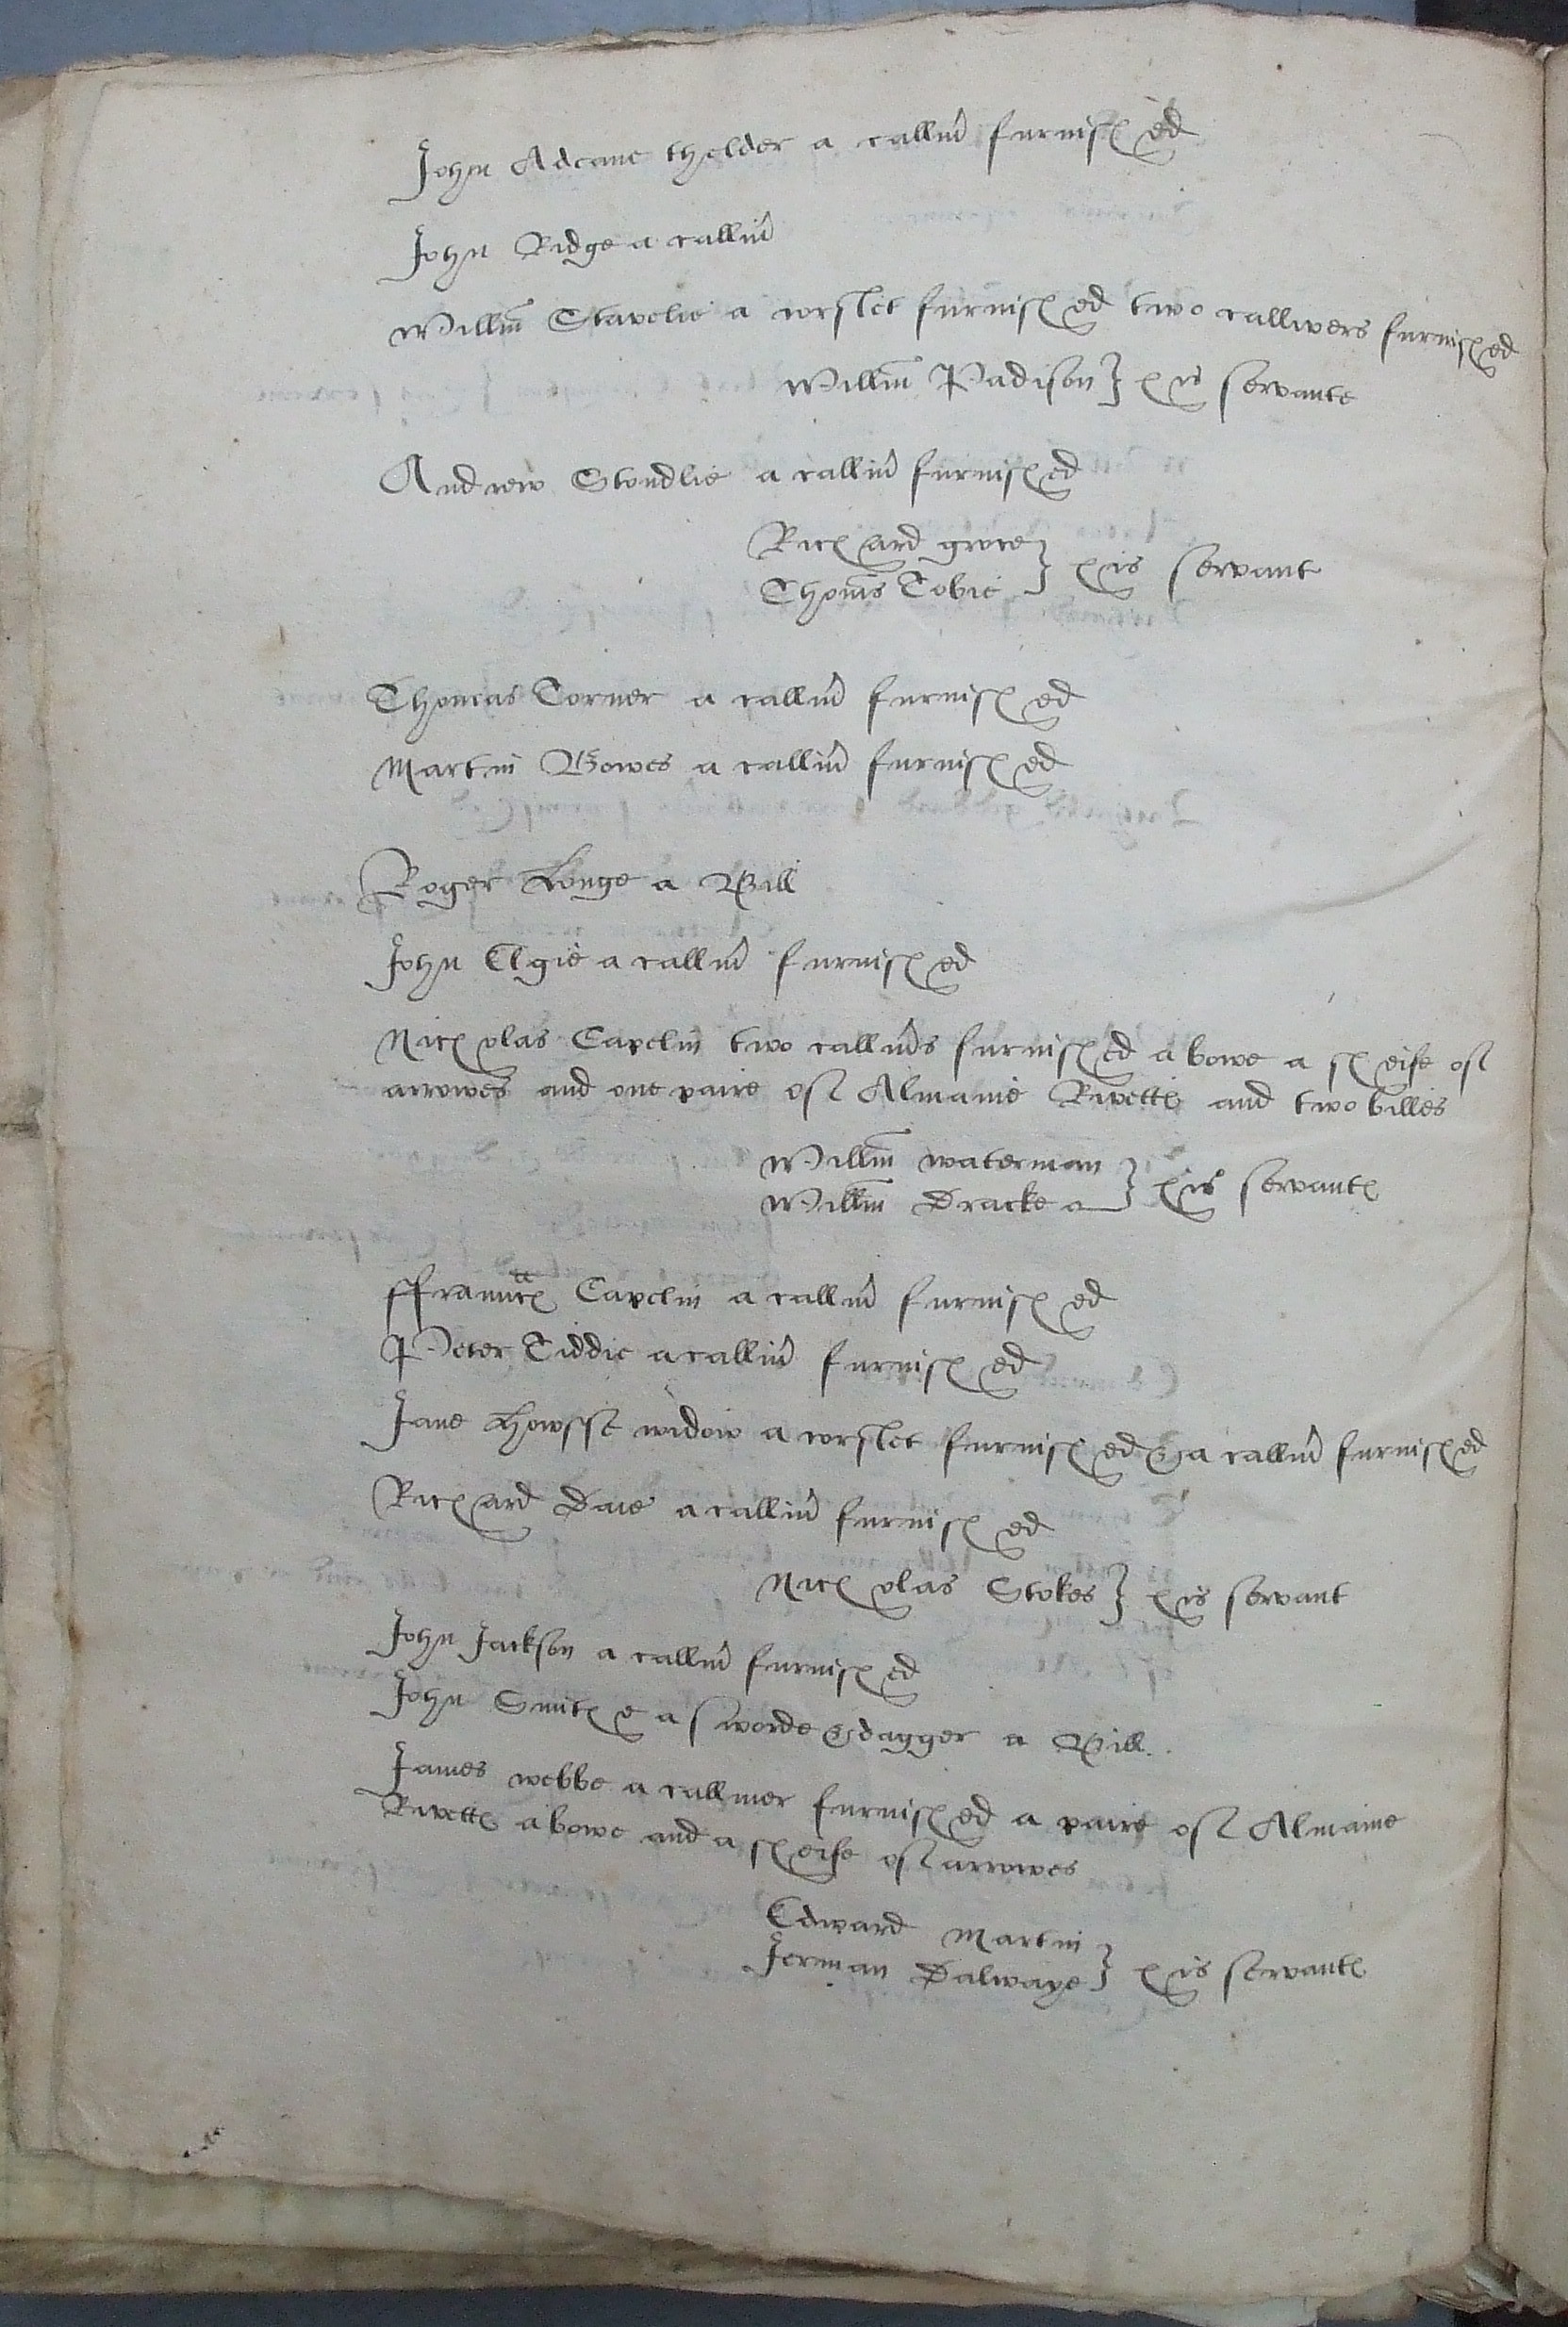 John Adeane thelder a calliu̅ furnished
John Ridge a calliu̅
Willm̅ Stavelie a corslet furnished two callivers furnished
Willm̅ Padison } his servante
Andrew Stondlie a calliu̅ furnished
Richard grove
Thom̅s Tobie } his servant
Thomas Torner a calliu̅ furnished
Martin Bowes a calliu̅ furnished
Roger Longe a Bill
John Elgie a calliu̅ furnished
Nicholas Capelin two calliu̅s furnished a bowe a sheife of
arrowes and one paire of Almanie Rivettes and two billes
Willm̅ waterman
Willm̅ Dracke } his servantes
ffraunces Capelin a calliu̅ furnished
Peter Tiddie a calliu̅ furnished
Jane Howsse widow a corslet furnished & a calliu̅ furnished
Richard Daie a calliu̅ furnished
Nicholas Stokes } his servant
John Jackson a calliu̅ furnished
John Smithe a sworde & dagger a Bill
James webbe a calliver furnished a paire of Almaine
Rivettes a bowe and a sheife of arrowes
Edward Martin
Jerman Dalwaye } his servantes